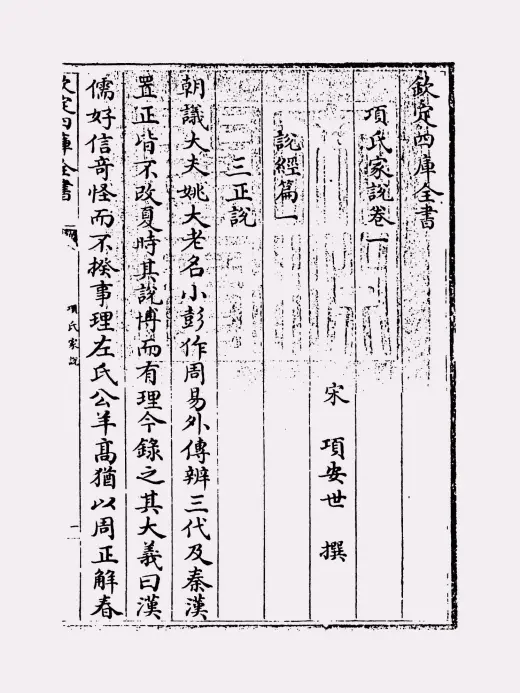 欽定四庫全書
項氏家說卷一
宋 項安世 撰
說經篇一
三正說
朝議大夫姚大老名小彭作周易外傳辨三代及秦漢
置正皆不改夏時其說博而有理今錄之其大義曰漢
儒好信奇怪而不揆事理左氏公羊高猶以周正解春
欽定四庫全書
項氏家說
一